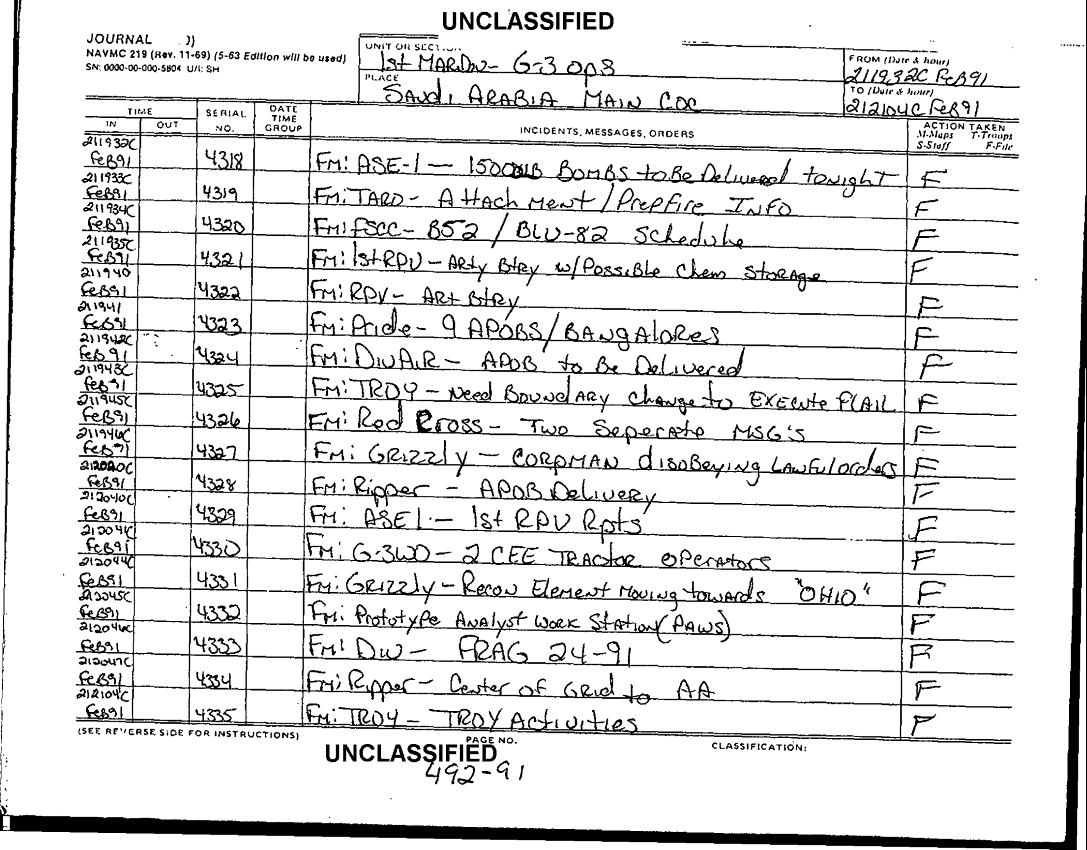 UNCLASSIFIED
JOURNAL
NAVMC 219 (Rev. 11-69) (5-63 Edition will be used)
SN: 0000-00-000-5804 U/I: SH
UNIT OR SECTION
1st MARDIV- G-3 OPS
PLACE
SAUDI ARABIA MAIN COC
FROM (Date & hour)
211932C FeB91
TO (Date & hour)
212104C FeB91
TIME
IN OUT
SERIAL NO.
DATE TIME GROUP
INCIDENTS, MESSAGES, ORDERS
ACTION TAKEN
M-Maps T-Troops
S-Staff F-File
211932C FeB91 4318 Fm: ASE-1 — 15000LB BOMBS to Be Delivered tonight F
211933C FeB91 4319 Fm: TARD- Attachment/Prepfire INFO F
211934C FeB91 4320 Fm: FSCC- B52 / BLU-82 Schedule F
211935C FeB91 4321 Fm: 1st RPV- Arty Btry w/Possible Chem Storage F
211940 FeB91 4322 Fm: RPV- Art Btry F
211941 FeB91 4323 Fm: Pride- 9 APOBS/BANGALORES F
211942C FeB91 4324 Fm: DivAiR- APOB to Be Delivered F
211943C FeB91 4325 Fm: TROY- Need BOUNDARY change to EXECUTE PLAIL F
211945C FeB91 4326 Fm: Red Cross- Two Seperate MSG'S F
211946C FeB91 4327 Fm: GRIZZLY- CORPMAN disOBEYING LAWFUL orders F
212020C FeB91 4328 Fm: Ripper - APOB Delivery F
212040C FeB91 4329 Fm: ASE1 - 1st RPV Rpts F
212041C FeB91 4330 Fm: G-3WO- 2 CEE TRACTOR OPERATORS F
212044C FeB91 4331 Fm: GRIZZLY- Recon Element Moving towards "OHIO" F
212045C FeB91 4332 Fm: Prototype Analyst Work Station (PAWS) F
212046C FeB91 4333 Fm: DW- FRAG 24-91 F
212047C FeB91 4334 Fm: Ripper- Center of Grid to AA F
212104C FeB91 4335 Fm: TROY- TROY Activities F
(SEE REVERSE SIDE FOR INSTRUCTIONS)
PAGE NO.
CLASSIFICATION:
UNCLASSIFIED
492-91